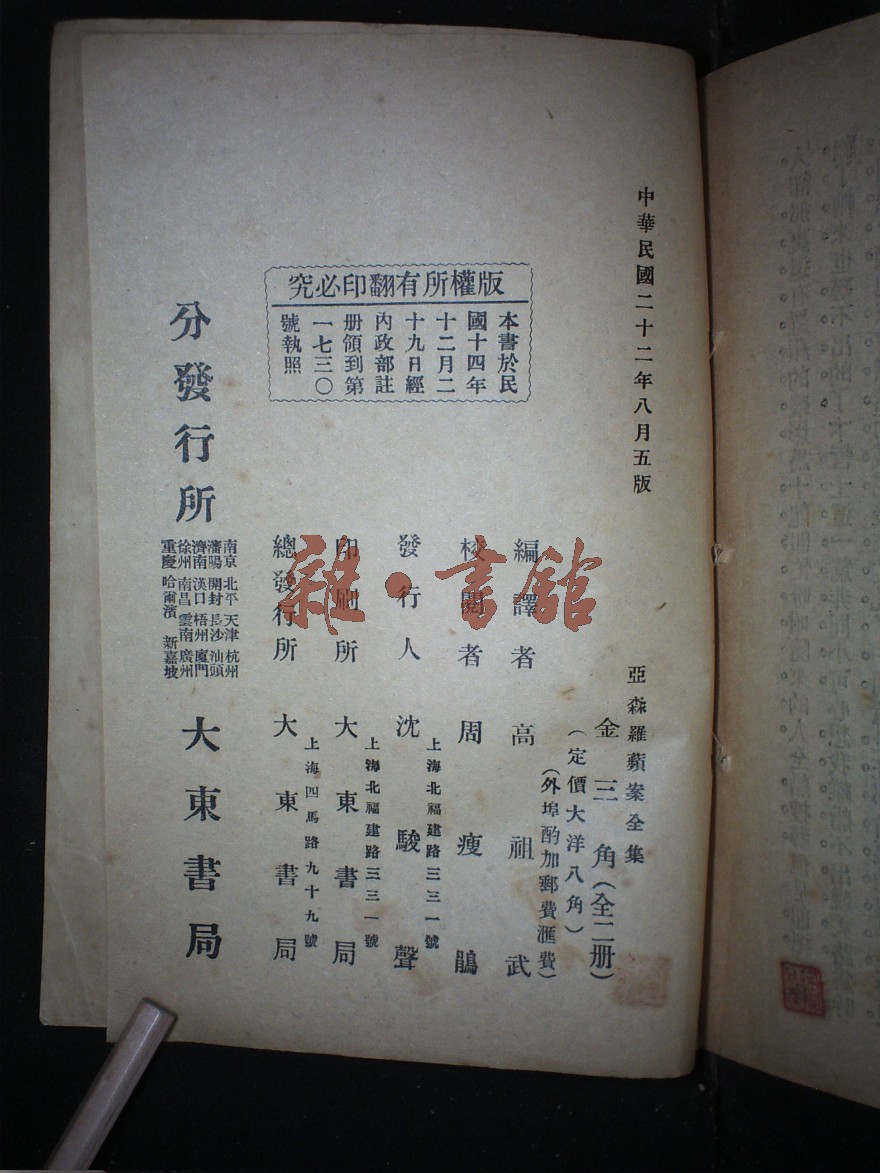 中華民國二十二年八月五版
亞森羅蘋案全集
金三角(全二册)
(定價大洋八角)
(外埠酌加郵費滙費)
版權所有翻印必究
本書於民
國十四年
十二月二
十九日經
內政部註
册領到第
一七三〇
號執照
編譯者高祖武
校閱者周瘦鵑
上海北福建路三三一號
發行人沈駿聲
上海北福建路三三一號
印刷所大東書局
上海四馬路九十九號
總發行所大東書局
分發行所
南京 北平 天津 杭州
瀋陽 開封 長沙 汕頭
濟南 漢口 梧州 廈門
徐州 南昌 雲南 廣州
重慶 哈爾濱 新嘉坡
大東書局
雜·書館